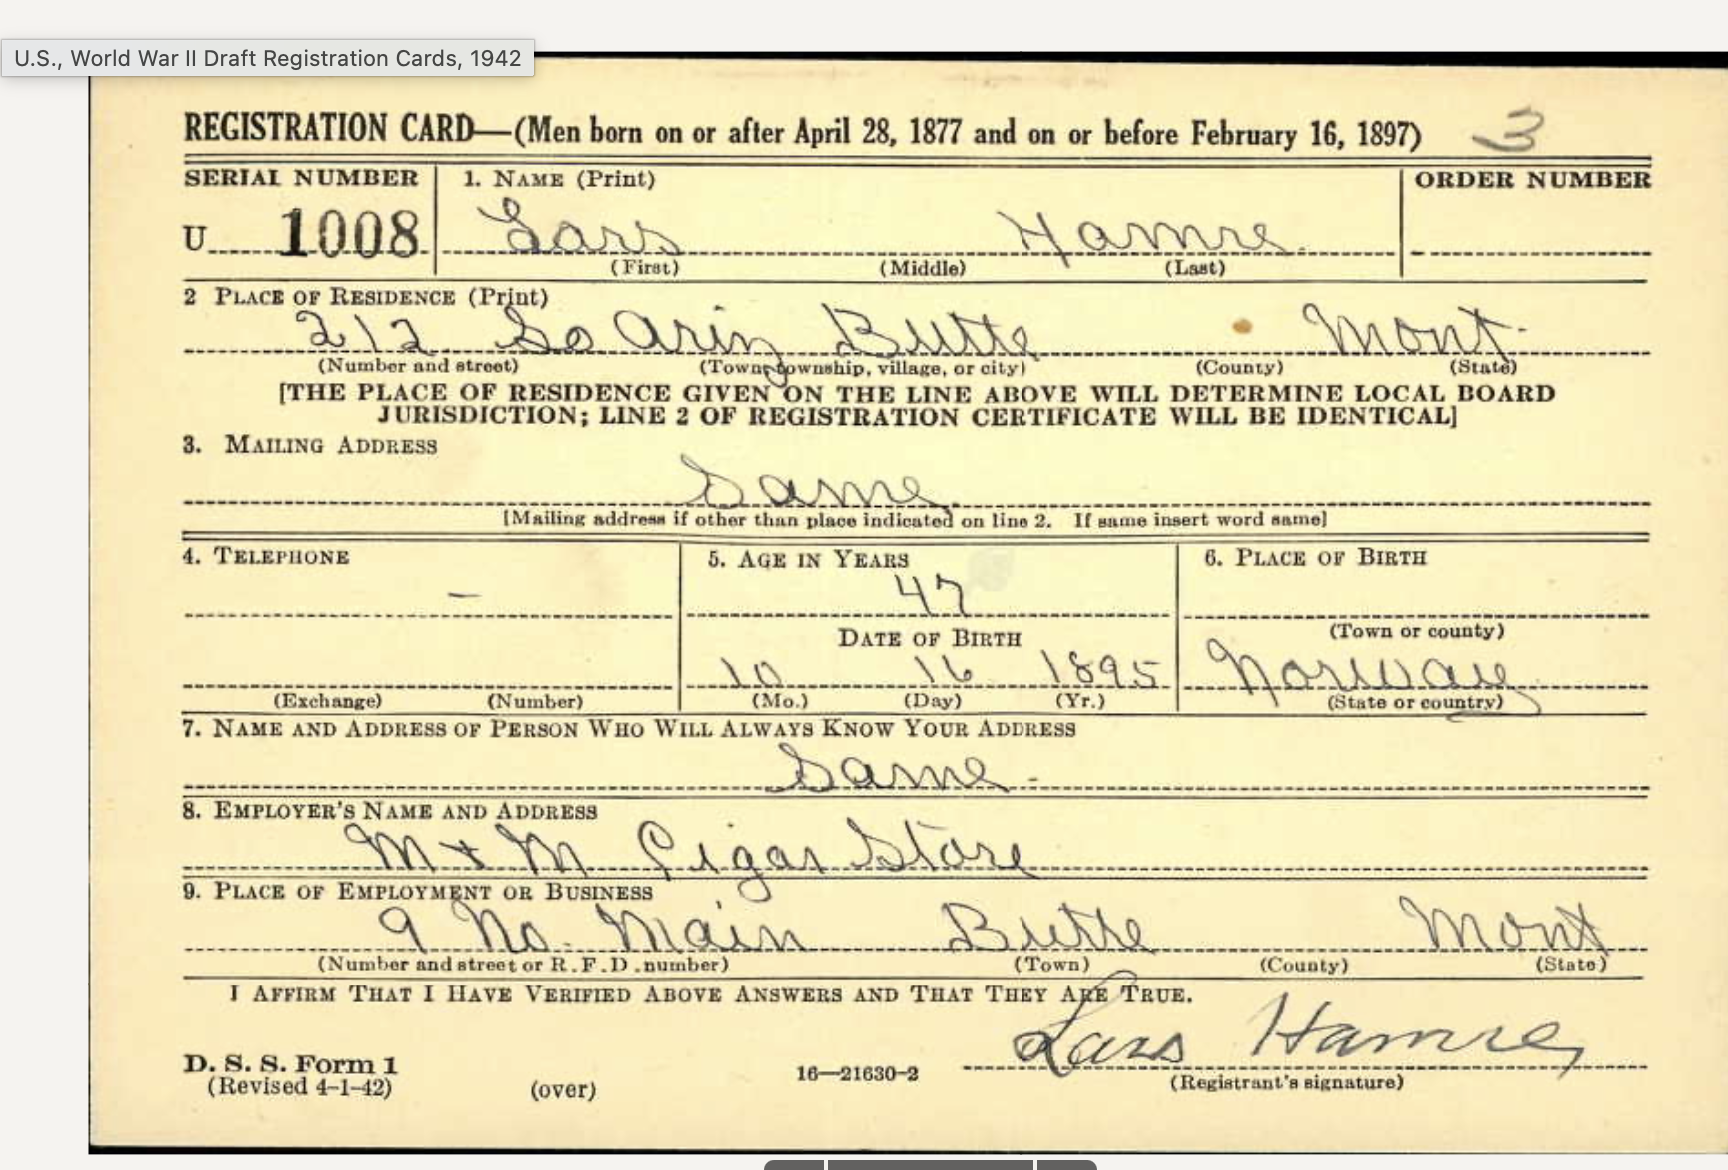 U.S., World War II Draft Registration Cards, 1942
REGISTRATION CARD—(Men born on or after April 28, 1877 and on or before February 16, 1897) 3
SERIAL NUMBER 1. NAME (Print) ORDER NUMBER
U 1008 Lars Hamre
(First) (Middle) (Last)
2 PLACE OF RESIDENCE (Print)
212 So Ariz Butte Mont.
(Number and street) (Town, township, village, or city) (County) (State)
[THE PLACE OF RESIDENCE GIVEN ON THE LINE ABOVE WILL DETERMINE LOCAL BOARD
JURISDICTION; LINE 2 OF REGISTRATION CERTIFICATE WILL BE IDENTICAL]
3. MAILING ADDRESS
Same
[Mailing address if other than place indicated on line 2. If same insert word same]
4. TELEPHONE 5. AGE IN YEARS 6. PLACE OF BIRTH
– 47
DATE OF BIRTH (Town or county)
10 16 1895 Norway
(Exchange) (Number) (Mo.) (Day) (Yr.) (State or country)
7. NAME AND ADDRESS OF PERSON WHO WILL ALWAYS KNOW YOUR ADDRESS
Same -
8. EMPLOYER'S NAME AND ADDRESS
M + M Cigar Store
9. PLACE OF EMPLOYMENT OR BUSINESS
9 No. Main Butte Mont
(Number and street or R.F.D. number) (Town) (County) (State)
I AFFIRM THAT I HAVE VERIFIED ABOVE ANSWERS AND THAT THEY ARE TRUE.
Lars Hamre
D. S. S. Form 1
(Revised 4-1-42) (over) 16—21630-2 (Registrant's signature)